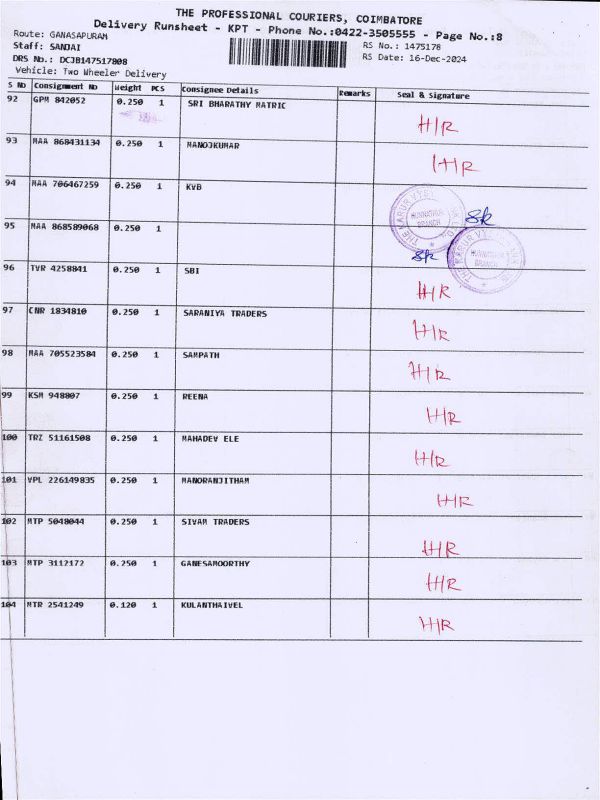 THE PROFESSIONAL COURIERS, COIMBATORE
Delivery Runsheet - KPT - Phone No.:0422-3505555 - Page No.:8
Route: GANASAPURAM
Staff: SANJAI
RS No.: 1475178
DRS No.: DCJB147517808
RS Date: 16-Dec-2024
Vehicle: Two Wheeler Delivery
S No Consignment No Weight PCS Consignee Details Remarks Seal & Signature
92 GPM 842052 0.250 1 SRI BHARATHY MATRIC H/R
93 MAA 868431134 0.250 1 MANOJKUMAR H/R
94 MAA 706467259 0.250 1 KVB
95 MAA 868589068 0.250 1
96 TVR 4258841 0.250 1 SBI H/R
97 CNR 1834810 0.250 1 SARANIYA TRADERS H/R
98 MAA 705523584 0.250 1 SAMPATH H/R
99 KSM 948807 0.250 1 REENA H/R
100 TRZ 51161508 0.250 1 MAHADEV ELE H/R
101 VPL 226149835 0.250 1 MANORANJITHAM H/R
102 MTP 5048044 0.250 1 SIVAM TRADERS H/R
103 MTP 3112172 0.250 1 GANESAMOORTHY H/R
104 MTR 2541249 0.120 1 KULANTHAIVEL H/R